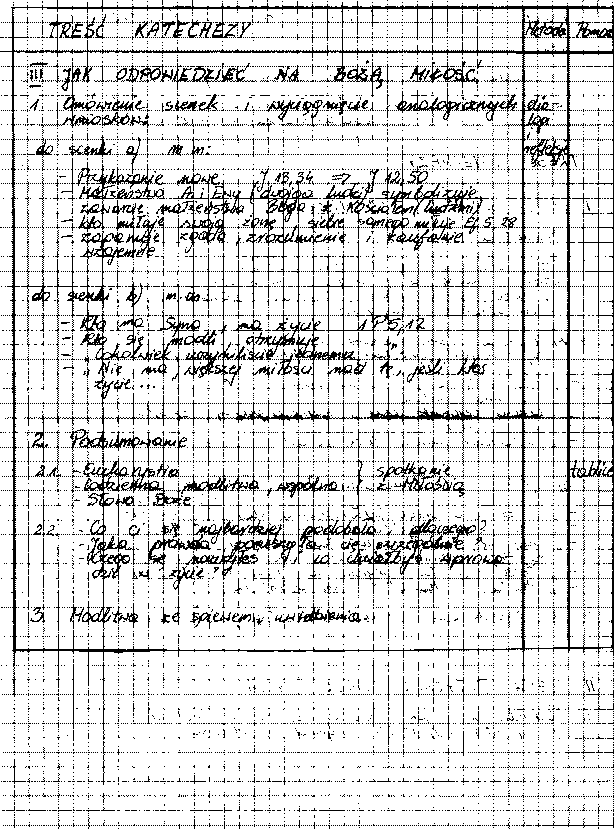 TREŚĆ KATECHEZY Metoda Pomoce
III JAK ODPOWIEDZIEĆ NA BOŻĄ MIŁOŚĆ.
1. Omówienie scenek i wyciągnięcie analogicznych dia-
wniosków: log
do scenki a) m.in: refleksja
- Przykazanie nowe J 13,34 => J 12,50
- Małżeństwo A. i Ewy (dwojga ludzi) symbolizuje
zawarcie małżeństwa Boga z Kościołem (ludźmi)
- kto miłuje swoją żonę, siebie samego miłuje Ef 5,28
- zapanuje zgoda, zrozumienie i zaufanie
wzajemne
do scenki b) m.in.
- Kto ma Syna, ma życie 5,12
- Kto się modli otrzymuje
- "Cokolwiek uczyniliście jednemu ..."
- "Nie ma większej miłości nad tę, jeśli ktoś
życie...
2. Podsumowanie
2.1. - Eucharystia } spotkanie tablica
- codzienna modlitwa, wspólna z Miłością
- Słowo Boże
2.2. - Co ci się najbardziej podobało, dlaczego?
- Jaka prawda poruszyła cię szczególnie?
- Czego się nauczyłeś i co chciałbyś wprowa-
dzić w życie?
3. Modlitwa ze śpiewem, uwielbienia.